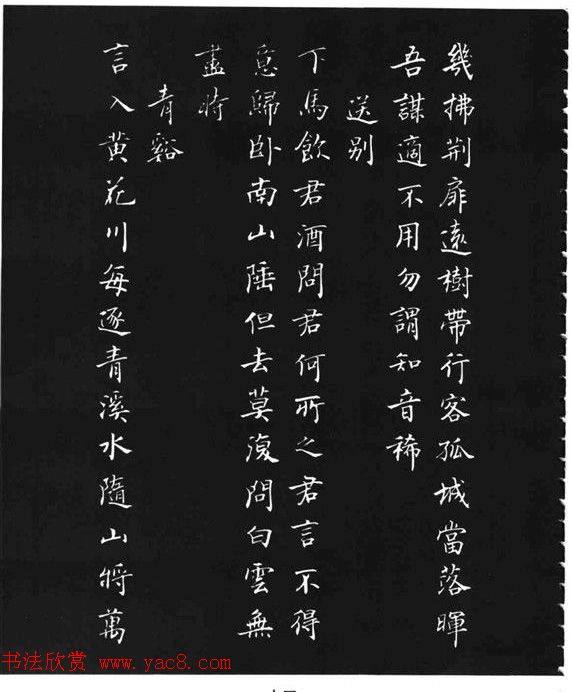 幾拂荆扉遠樹帶行客孤城當落暉
吾謀適不用勿謂知音稀
送别
下馬飲君酒問君何所之君言不得
意歸卧南山陲但去莫復問白雲無
盡時
青谿
言入黄花川每逐青溪水隨山將萬
书法欣赏 www.yac8.com